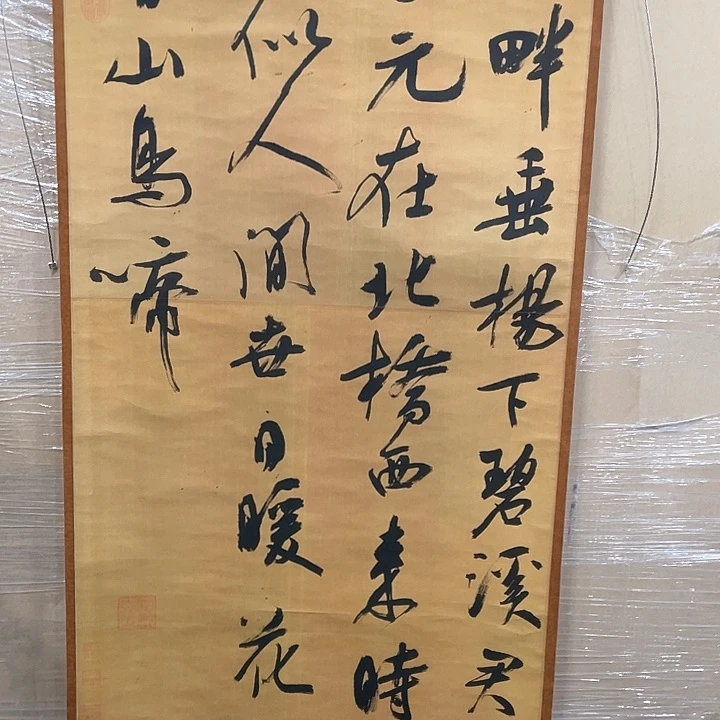 畔垂楊下碧溪君
元在北橋西來時
似人間世日暖花
山鳥啼